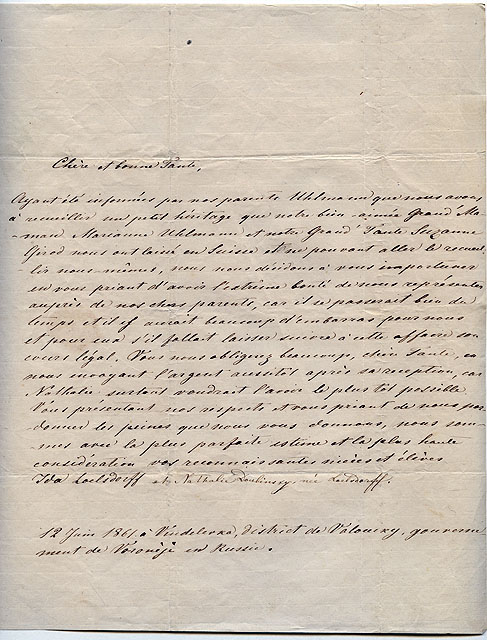 Chère et bonne Tante,
Ayant été informées par nos parents Uhlmann que nous avons
à recueillir un petit héritage que notre bien-aimée Grand' Ma-
man Marianne Uhlmann et notre Grand' Tante Suzanne
Girod nous ont laissé en Suisse et ne pouvant aller le recueil-
lir nous-mêmes, nous nous décidons à vous importuner
en vous priant d'avoir l'extrême bonté de nous représenter
auprès de nos chers parents, car il se passerait bien du
temps et il y aurait beaucoup d'embarras pour nous
et pour eux s'il fallait laisser suivre à cette affaire son
cours légal. Vous nous obligerez beaucoup, chère Tante, en
nous envoyant l'argent aussitôt après sa réception, car
Nathalie surtout voudrait l'avoir le plus tôt possible.
Vous présentant nos respects et vous priant de nous par-
donner les peines que nous vous donnons, nous som-
mes avec la plus parfaite estime et la plus haute
considération vos reconnaissantes nièces et élèves
Ida et Nathalie née
12 Juin 1861, à district de gouverne-
ment de Voronéje en Russie.